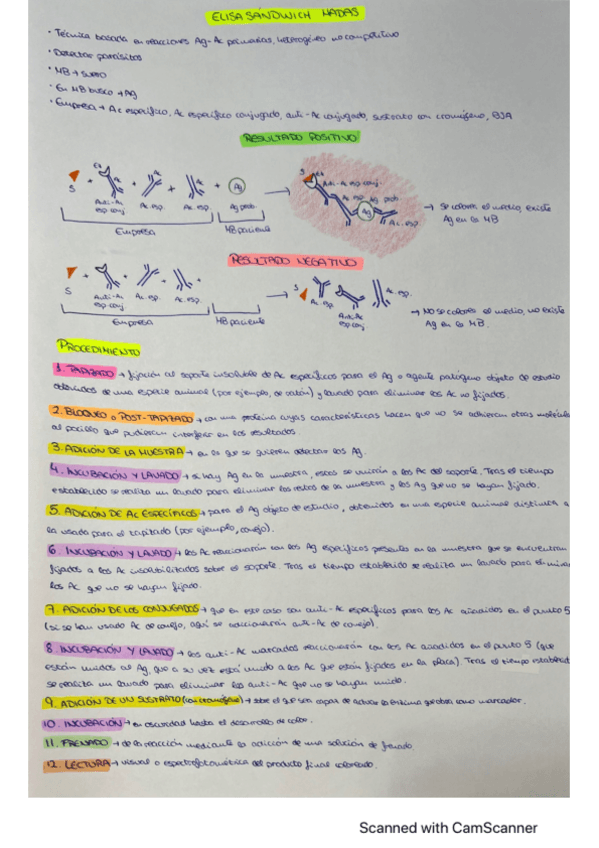 ELISA SÁNDWICH HADAS
· Técnica basada en reacciones Ag-Ac primarias, heterogéneo no competitivo
· Detectar parásitos
· MB → suero
· En MB busco → Ag
· Empresa → Ac específico, Ac específico conjugado, anti-Ac conjugado, sustrato con cromógeno, BSA
RESULTADO POSITIVO
S + Anti-Ac esp conj. + Ac. esp. + Ac esp. + Ag prob.
Empresa
MB paciente
S
Anti-Ac esp conj.
Ac esp
Ag prob.
Ag
Ac. esp.
→ Se colorea el medio, existe
Ag en la MB
RESULTADO NEGATIVO
S + Anti-Ac esp conj. + Ac. esp. + Ac. esp. +
Empresa
MB paciente
S
Ac. esp.
Anti-Ac esp conj.
Ac. esp.
→ NO se colorea el medio, no existe
Ag en la MB.
PROCEDIMIENTO
1. TAPIZADO → fijación al soporte insoluble de Ac específicos para el Ag o agente patógeno objeto de estudio
obtenidos de una especie animal (por ejemplo, de ratón) y lavado para eliminar los Ac no fijados.
2. BLOQUEO o POST-TAPIZADO → con una proteína cuyas características hacen que no se adhieran otras molécula
al pocillo que pudieran interferir en los resultados.
3. ADICIÓN DE LA MUESTRA → en la que se quieren detectar los Ag.
4. INCUBACIÓN Y LAVADO → si hay Ag en la muestra, estos se unirán a los Ac del soporte. Tras el tiempo
establecido se realiza un lavado para eliminar los restos de la muestra y los Ag que no se hayan fijado.
5. ADICIÓN DE Ac ESPECÍFICOS → para el Ag objeto de estudio, obtenidos en una especie animal distinta a
la usada para el tapizado (por ejemplo, conejo).
6. INCUBACIÓN Y LAVADO → los Ac reaccionarán con los Ag específicos presentes en la muestra que se encuentran
fijados a los Ac insolubilizados sobre el soporte. Tras el tiempo establecido se realiza un lavado para eliminar
los Ac que no se hayan fijado.
7. ADICIÓN DE LOS CONJUGADOS → que en este caso son anti-Ac específicos para los Ac añadidos en el punto 5
(si se han usado Ac de conejo, aquí se adicionarán anti-Ac de conejo).
8. INCUBACIÓN Y LAVADO → los anti-Ac marcados reaccionarán con los Ac añadidos en el punto 5 (que
están unidos al Ag, que a su vez está unido a los Ac que están fijados en la placa). Tras el tiempo establecid
se realiza un lavado para eliminar los anti-Ac que no se hayan unido.
9. ADICIÓN DE UN SUSTRATO (con cromógeno) → sobre el que sea capaz de actuar la enzima que obra como marcador.
10. INCUBACIÓN → en oscuridad hasta el desarrollo de color.
11. FRENADO → de la reacción mediante la adición de una solución de frenado.
12. LECTURA → visual o espectrofotométrica del producto final coloreado.
Scanned with CamScanner